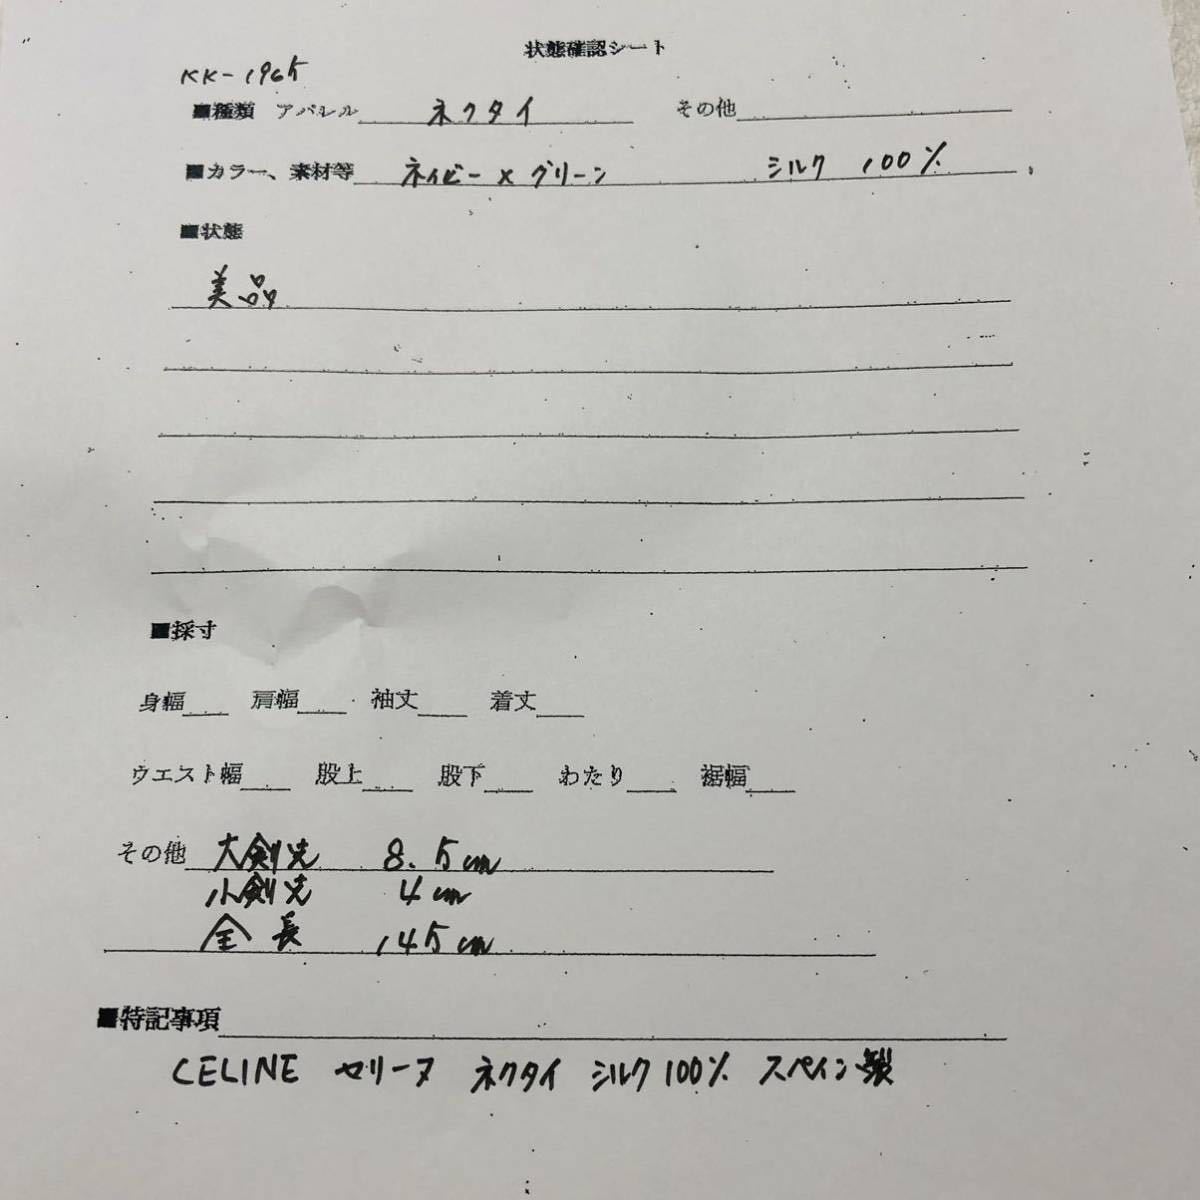 状態確認シート
KK-1965
■種類 アパレル ネクタイ その他
■カラー、素材等 ネイビー×グリーン シルク 100%
■状態
美品
■採寸
身幅 肩幅 袖丈 着丈
ウエスト幅 股上 股下 わたり 裾幅
その他 大剣先 8.5cm
小剣先 4cm
全長 145cm
■特記事項
CELINE セリーヌ ネクタイ シルク100% スペイン製